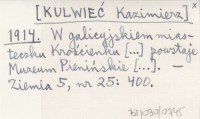 [KULWIEĆ Kazimierz] x
1914. W galicyjskiem mias-
teczku Krościenku [...] powstaje
Muzeum Pienińskie [...]. —
Ziemia 5, nr 25: 400.